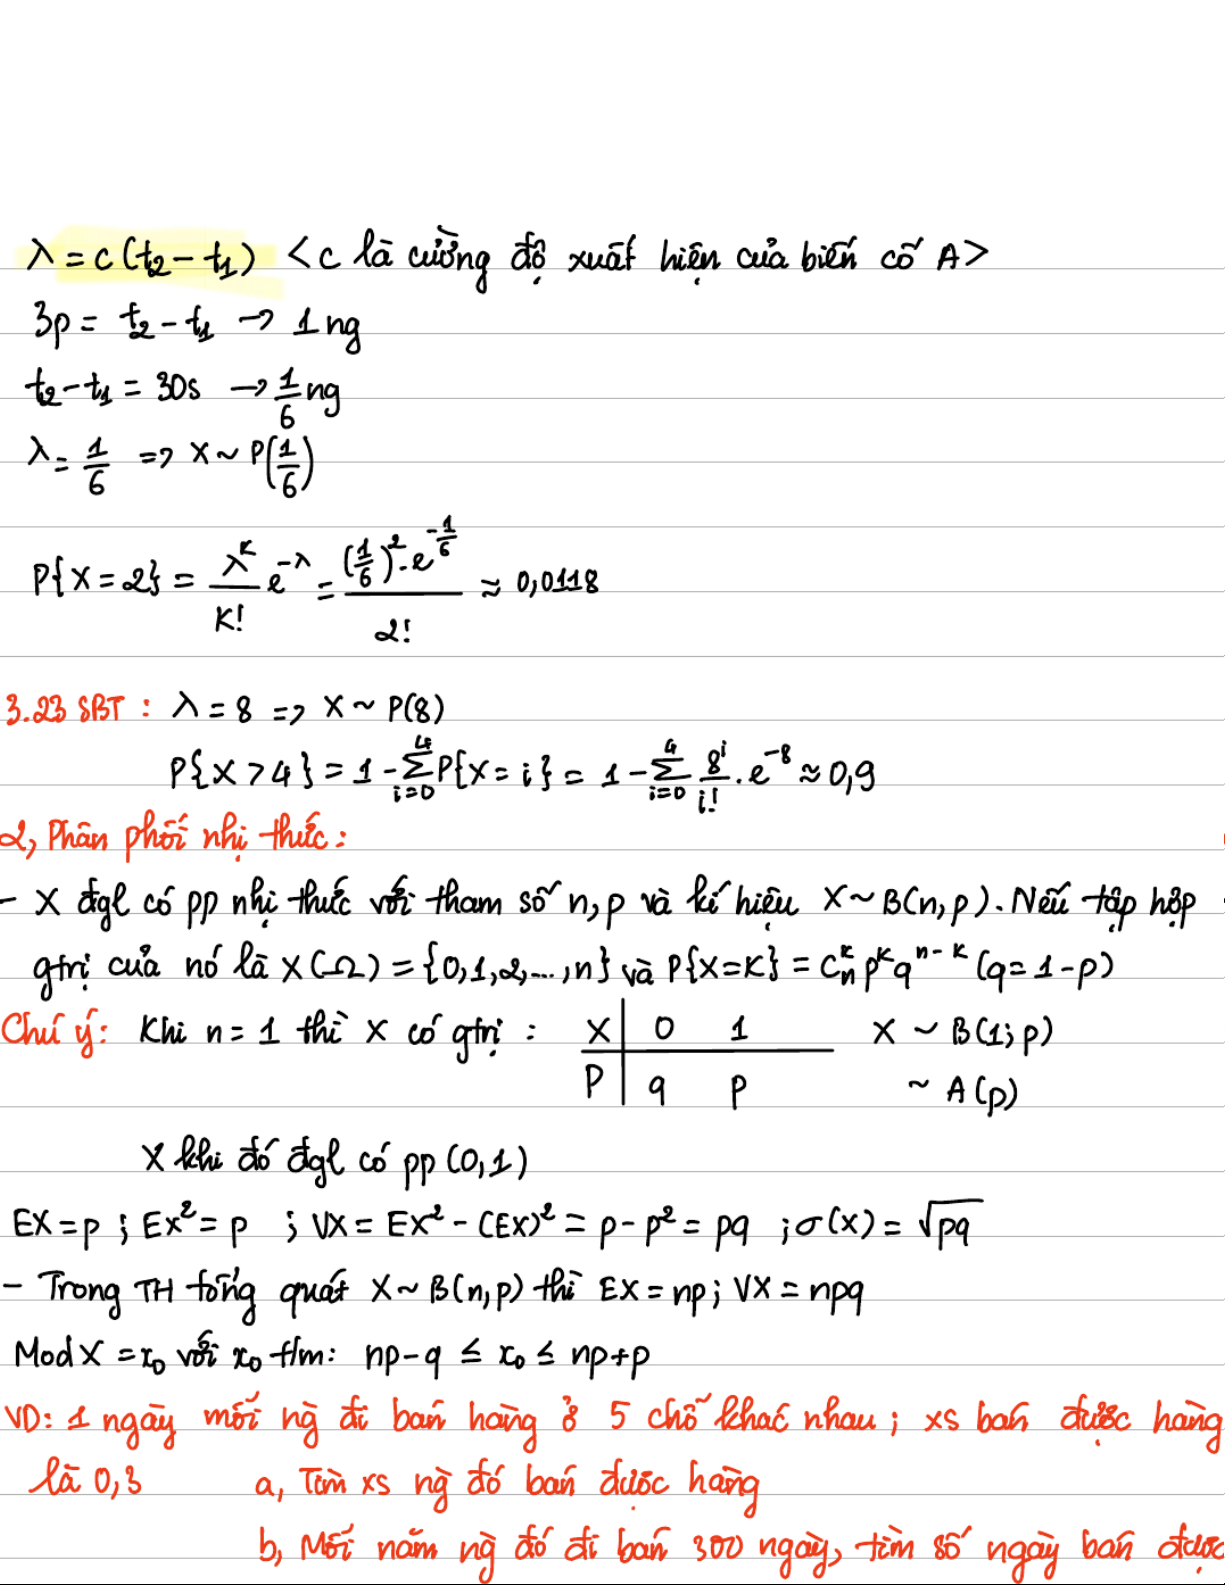 λ = c(t₂ - t₁) <c là cường độ xuất hiện của biến cố A>
3p = t₂ - t₁ → 1 ng
t₂ - t₁ = 30s → 1/6 ng
λ = 1/6 => X ~ P(1/6)
P{X = 2} = λ^K/K! e^-λ = (1/6)^2 . e^-1/6 / 2! ≈ 0,0118
3.23 SBT : λ = 8 => X ~ P(8)
P{X > 4} = 1 - Σ_{i=0}^{4} P{X = i} = 1 - Σ_{i=0}^{4} 8^i/i! . e^-8 ≈ 0,9
2, Phân phối nhị thức :
- X đgl có pp nhị thức với tham số n, p và kí hiệu X ~ B(n, p). Nếu tập hợp
gtrị của nó là X(Ω) = {0, 1, 2, ..., n} và P{X = K} = C_n^k p^k q^{n-k} (q = 1 - p)
Chú ý: Khi n = 1 thì X có gtrị : X | 0 1 X ~ B(1; p)
P | q p ~ A(p)
X khi đó đgl có pp (0,1)
EX = p ; EX² = p ; VX = EX² - (EX)² = p - p² = pq ; σ(X) = √pq
- Trong TH tổng quát X ~ B(n, p) thì EX = np ; VX = npq
Mod X = x₀ với x₀ t/m: np - q ≤ x₀ ≤ np + p
VD: 1 ngày mỗi ng đi bán hàng ở 5 chỗ khác nhau ; xs bán được hàng
là 0,3 a, Tìm xs ng đó bán được hàng
b, Mỗi năm ng đó đi bán 300 ngày, tìm số ngày bán được